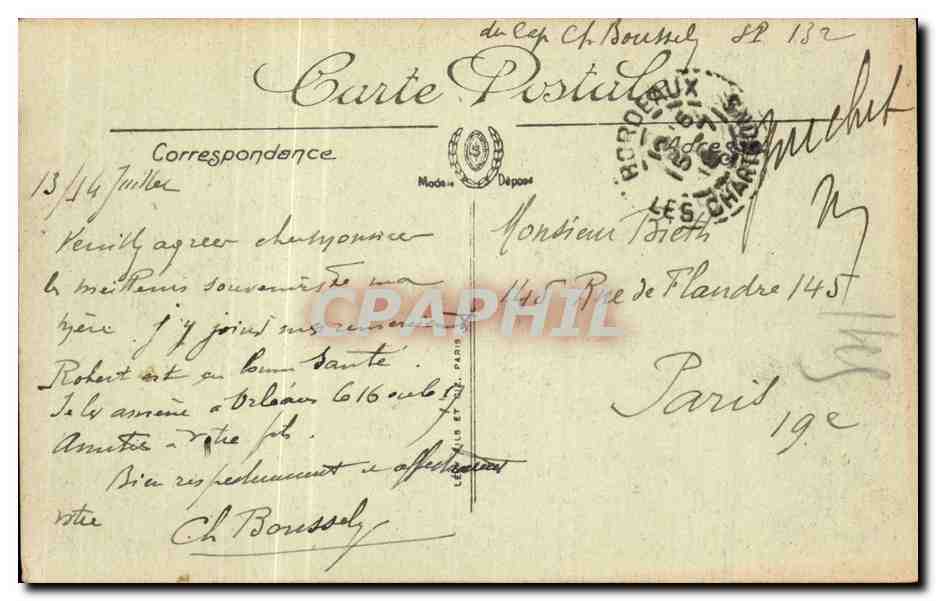 du Cap Ch Boussely SP 132
Carte Postale
Correspondance
Adresse
Modèle Déposé
BORDEAUX
LES CHARTRONS
13/14 Juillet
Veuillez agréer cher Monsieur
les meilleurs souvenirs de ma
mère j'y joins mes remerciements
Robert est en bonne santé.
Je les amène à Orléans le 16 ou le 17
Amitiés à votre fils.
Bien respectueusement et affectueusement
votre
Ch Boussely
Monsieur Bieth
145 Rue de Flandre 145
Paris
19e
LÉVY FILS ET CIE, PARIS
CPARPHIL